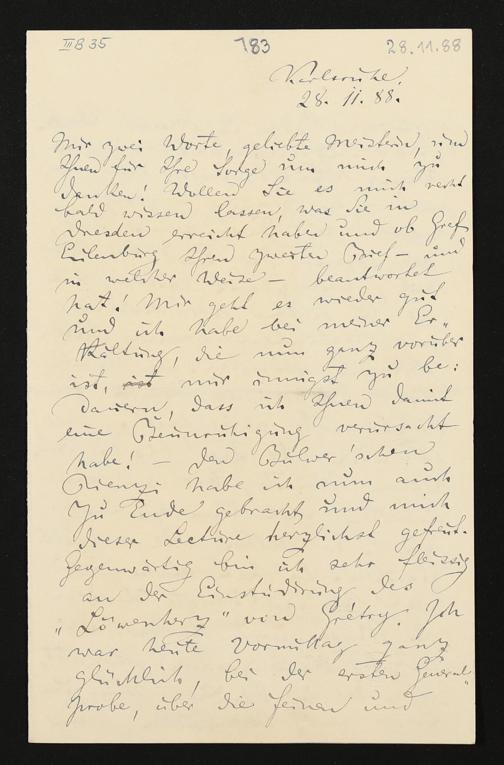 III B 35 183 28.11.88
Karlsruhe.
28. 11. 88.
Nur zwei Worte, geliebte Meisterin, um
Ihnen für Ihre Sorge um mich zu
danken! Wollen Sie es mich recht
bald wissen lassen, was Sie in
Dresden erreicht haben und ob Graf
Eulenburg Ihren zweiten Brief – und
in welcher Weise – beantwortet
hat! Mir geht es wieder gut
und ich habe bei meiner Er-
kältung, die nun ganz vorüber
ist, nur innigst zu be:
dauern, dass ich Ihnen damit
eine Beunruhigung verursacht
habe! – Den Bulwer'schen
Rienzi habe ich nun auch
zu Ende gebracht und mich
dieser Lecture herzlichst gefreut.
Gegenwärtig bin ich sehr fleissig
an der Einstudirung des
"Löwenherz" von Grétry. Ich
war heute Vormittag ganz
glücklich, bei der ersten General-
probe, über die feinen und